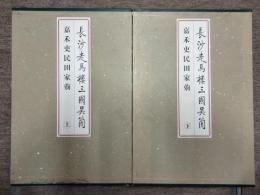 長沙走馬樓三國吳簡
嘉禾吏民田家莂
上
長沙走馬樓三國吳簡
嘉禾吏民田家莂
下